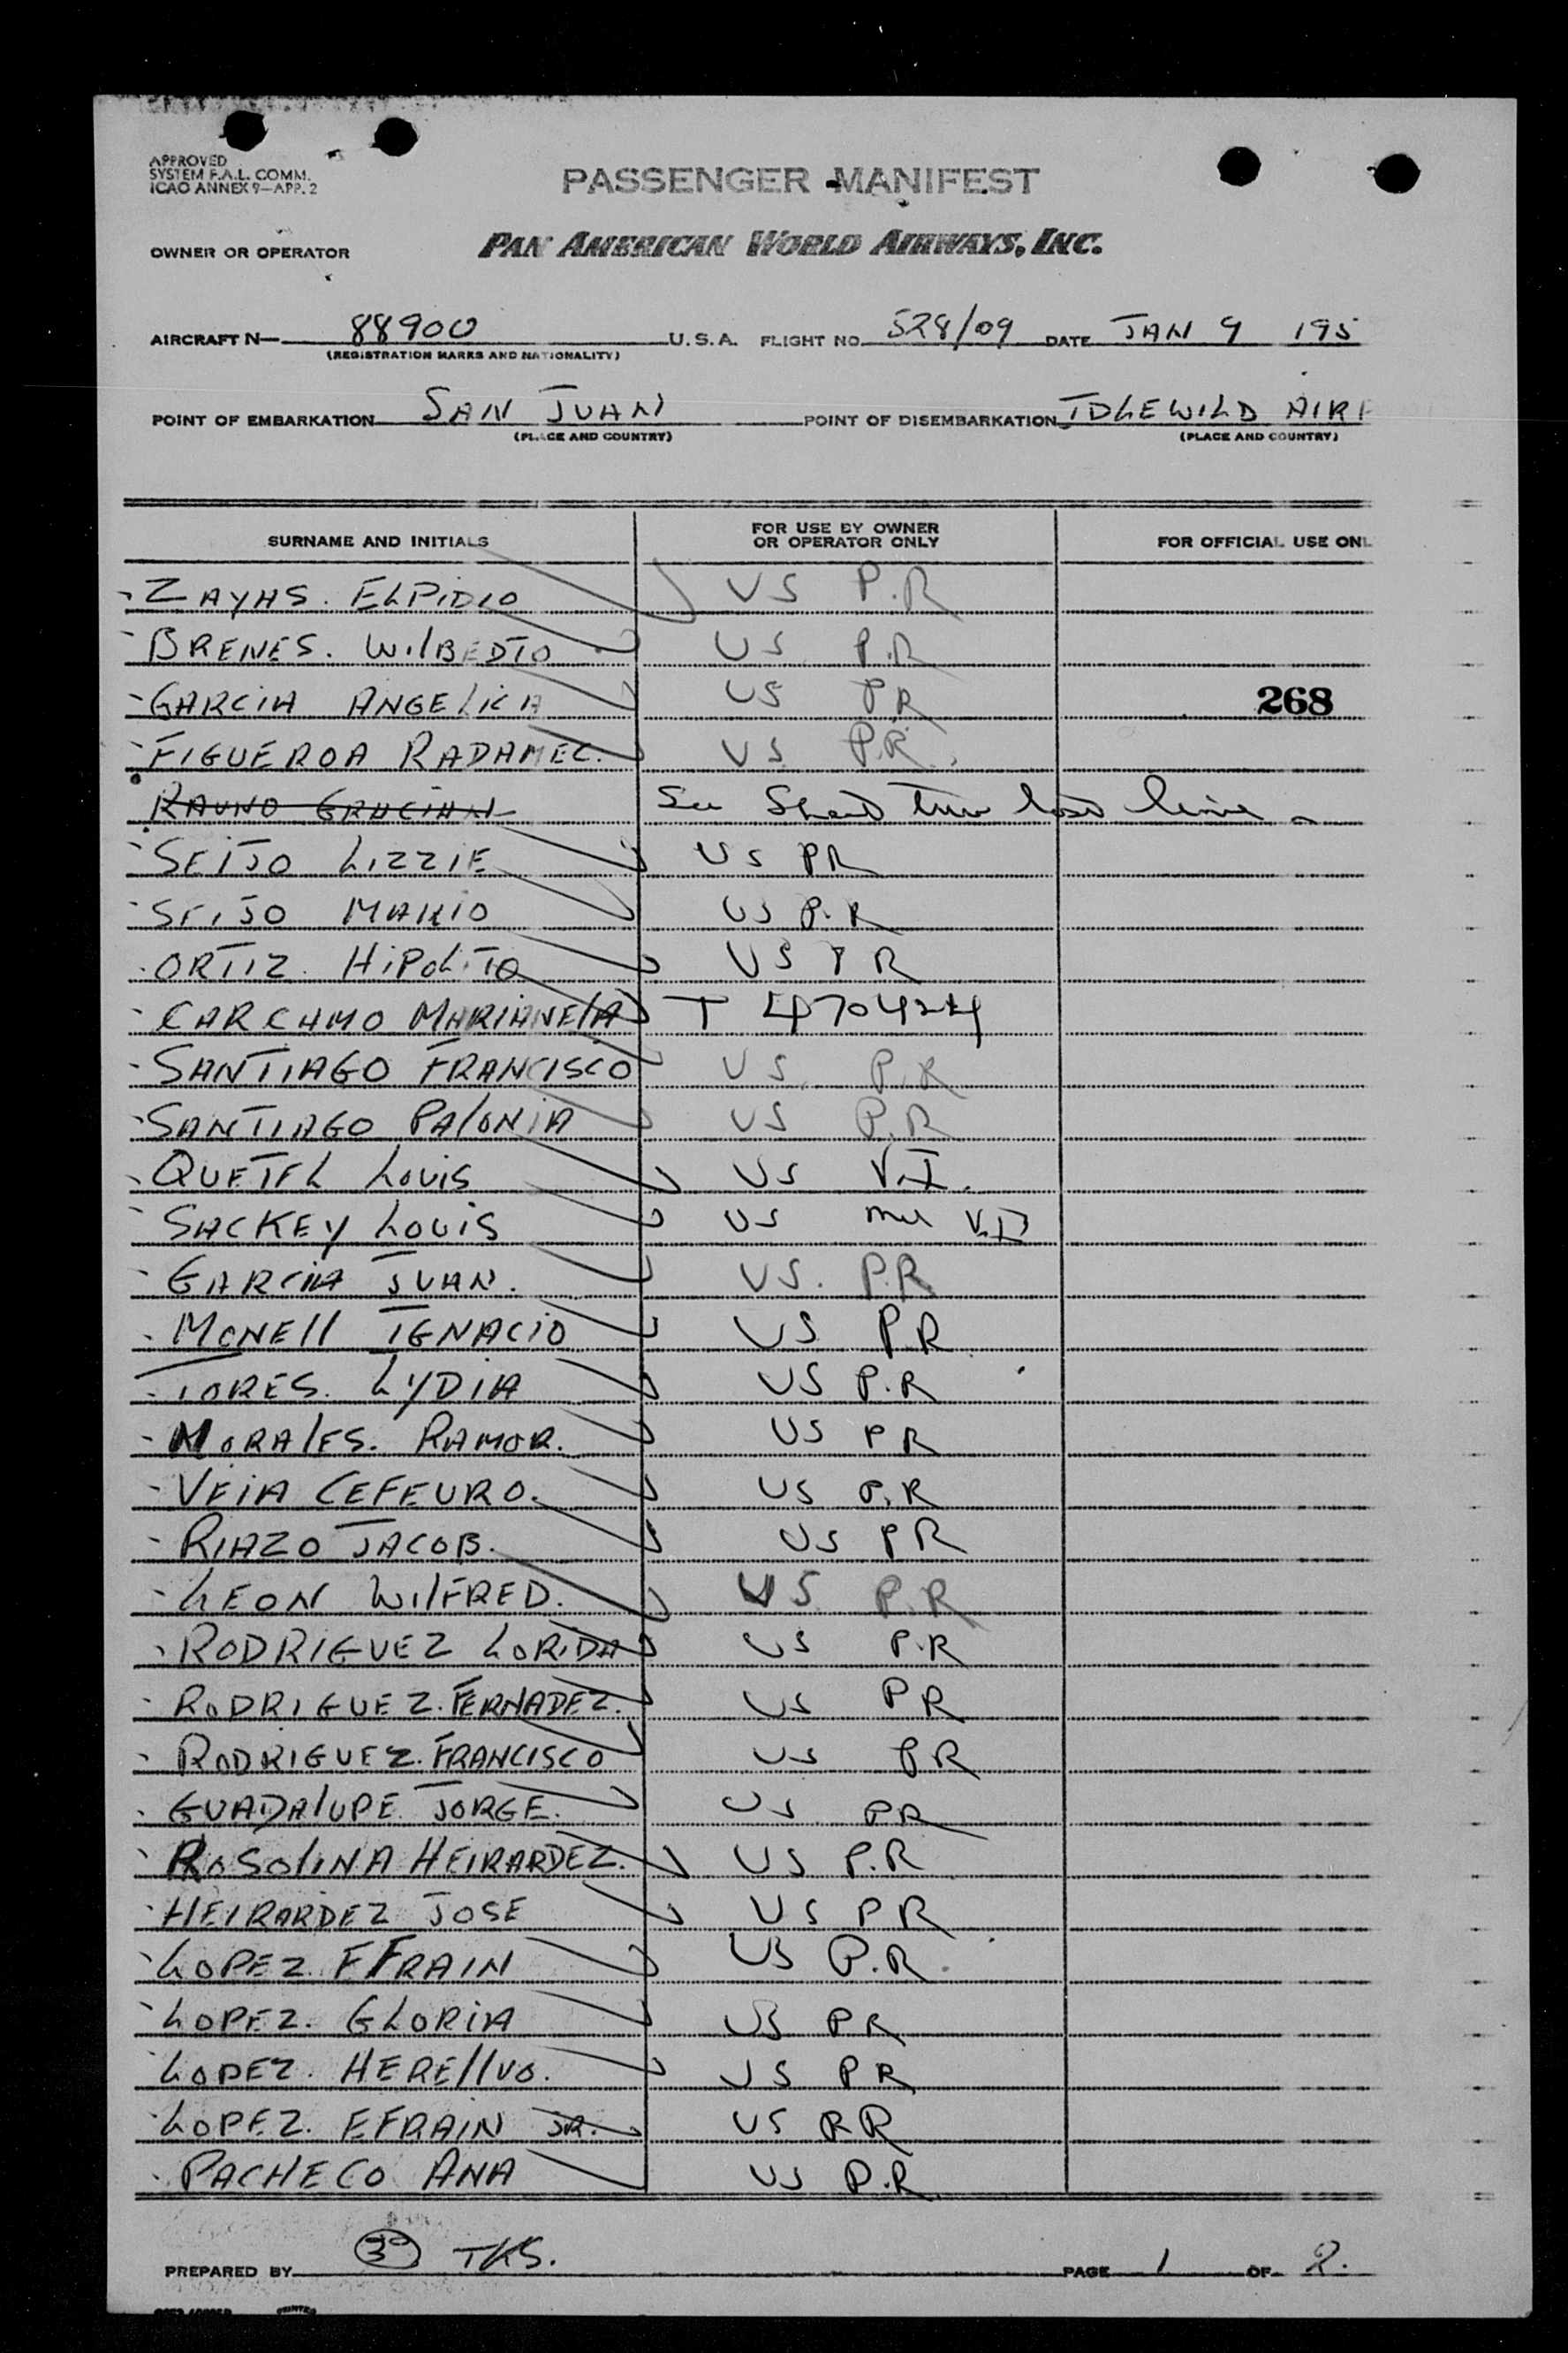 APPROVED
SYSTEM F.A.L. COMM.
ICAO ANNEX 9—APP. 2
PASSENGER MANIFEST
OWNER OR OPERATOR PAN AMERICAN WORLD AIRWAYS, INC.
AIRCRAFT N— 88900 U.S.A. FLIGHT NO. 528/09 DATE JAN 9 195
(REGISTRATION MARKS AND NATIONALITY)
POINT OF EMBARKATION SAN JUAN POINT OF DISEMBARKATION IDLEWILD AIRP
(PLACE AND COUNTRY) (PLACE AND COUNTRY)
SURNAME AND INITIALS FOR USE BY OWNER OR OPERATOR ONLY FOR OFFICIAL USE ONL
ZAYAS. ELPIDIO US P.R
BRENES. WILBEDTO US P.R
GARCIA ANGELICA US PR 268
FIGUEROA RADAMEC. US PR.
RAUNO GRACIAN See Sheet two last line
SEIJO LIZZIE US PR
SEIJO MARIO US P.R
ORTIZ. HIPOLITO US PR
CARCAMO MARIANELA T 470424
SANTIAGO FRANCISCO US P.R
SANTIAGO PALONIA US P.R
QUETEL LOUIS US V.I.
SACKEY LOUIS US V.I
GARCIA JUAN. US. P.R
MONELL IGNACIO US P.R
TORES. LYDIA US P.R
MORALES. RAMOR. US PR
VEIA CEFEURO. US P.R
RIAZO JACOB. US PR
LEON WILFRED. US P.R
RODRIGUEZ LORIDA US P.R
RODRIGUEZ. FERNADEZ. US PR
RODRIGUEZ. FRANCISCO US PR
GUADALUPE. JORGE. US PR
ROSOLINA HEIRARDEZ. US P.R
HEIRARDEZ JOSE US PR
LOPEZ. EFRAIN US P.R.
LOPEZ. GLORIA US PR
LOPEZ. HERELLVO. US PR
LOPEZ. EFRAIN JR. US PR
PACHECO ANA US P.R.
PREPARED BY 30 TKS. PAGE 1 OF 2.